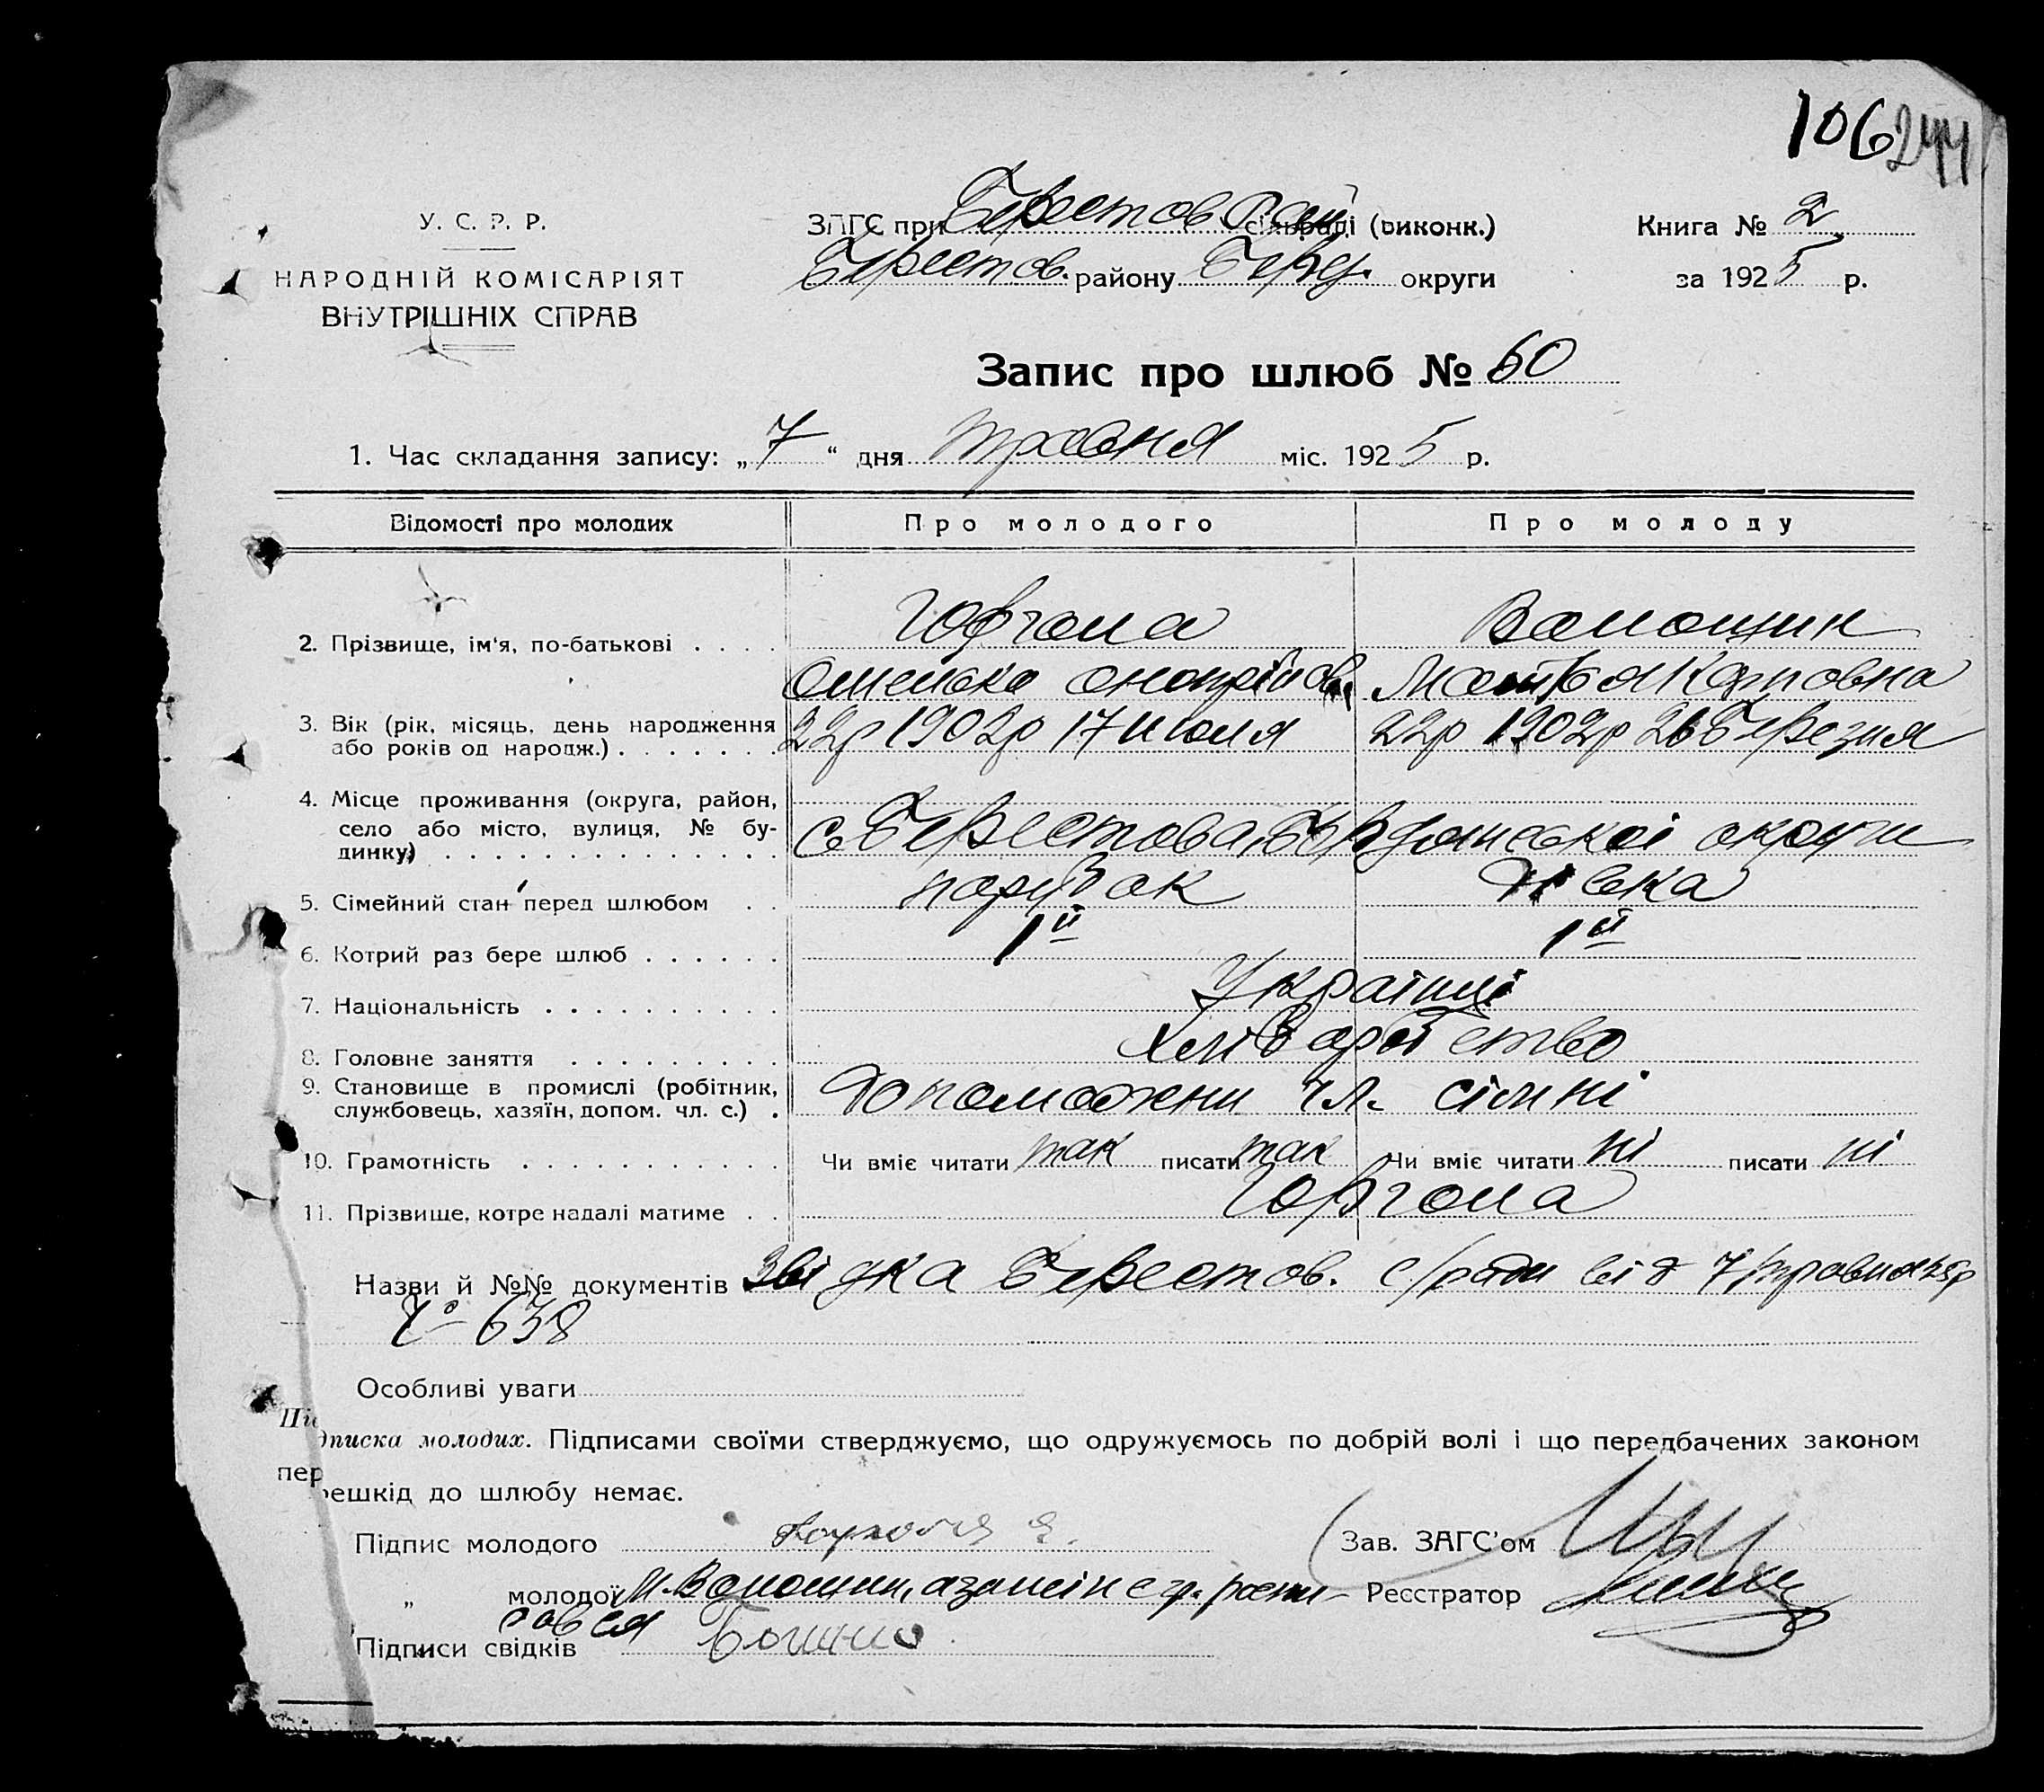 106 244
У. С. Р. Р.
НАРОДНІЙ КОМІСАРІЯТ
ВНУТРІШНІХ СПРАВ
ЗАГС при Берестов Рай сільраді (виконк.)
Берестов. району Берд. округи
Книга № 2
за 1925 р.
Запис про шлюб № 60
1. Час складання запису: „7“ дня травня міс. 1925 р.
Відомості про молодих Про молодого Про молоду
2. Прізвище, ім'я, по-батькові . . . . Горгола Волощин
Омелько Онопрійов. Мотря Карповна
3. Вік (рік, місяць, день народження
або років од народж.) . . . . . . . 22р 1902р 17 июля 22р 1902р 26 Березня
4. Місце проживання (округа, район,
село або місто, вулиця, № бу-
динку) . . . . . . . . . . . . . . с Берестова, Бердянської округи
5. Сімейний стан перед шлюбом . . парубок дівка
6. Котрий раз бере шлюб . . . . . . 1й 1й
7. Національність . . . . . . . . . . Українці
8. Головне заняття . . . . . . . . . Хліборобство
9. Становище в промислі (робітник,
службовець, хазяїн, допом. чл. с.) . допоможени чл. сімні
10. Грамотність . . . . . . . . . . . Чи вміє читати так писати так Чи вміє читати ні писати ні
11. Прізвище, котре надалі матиме . . Горгола
Назви й №№ документів Звідка Берестов. с/ради від 7/травня 25р
№ 638
Особливі уваги
Підписка молодих. Підписами своїми стверджуємо, що одружуємось по добрій волі і що передбачених законом
перешкід до шлюбу немає.
Підпис молодого
Зав. ЗАГС'ом
„ молодої М. Волощин, а за неі
Реєстратор
Підписи свідків